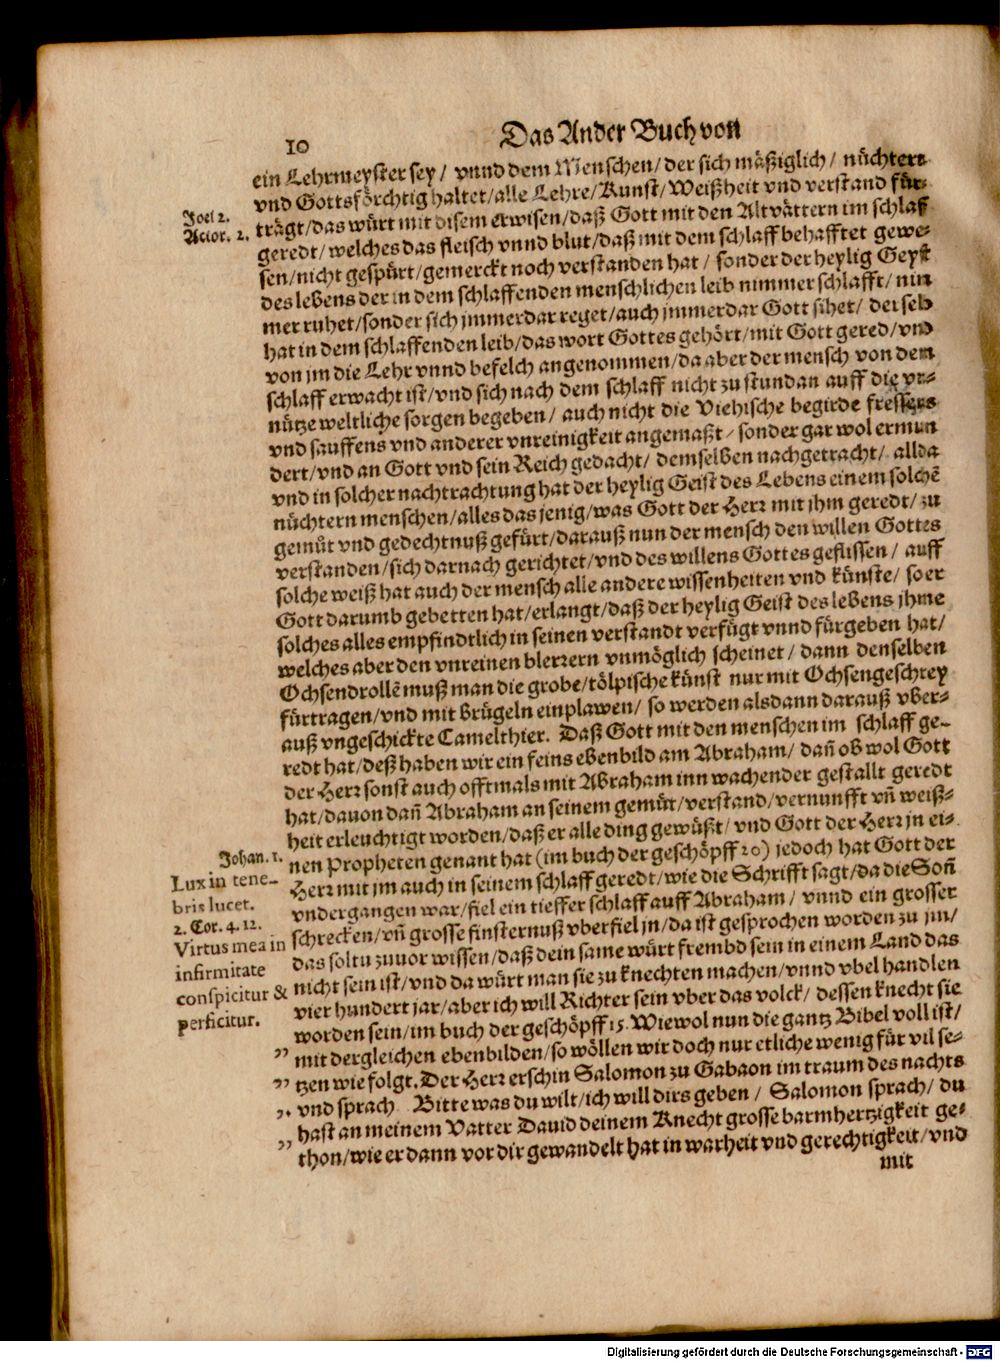 10 Das Ander Buch von
ein Lehrmeyster sey / vnnd dem Menschen / der sich mäßiglich / nüchtern
vnd Gottsförchtig haltet / alle Lehre / Kunst / Weißheit vnd verstand für-
Joel 2.
trägt / das würt mit disem erwisen / daß Gott mit den Altvättern im schlaf
Actor. 2.
geredt / welches das fleisch vnnd blut / daß mit dem schlaff behafftet gewe-
sen / nicht gespürt / gemerckt noch verstanden hat / sonder der heylig Geyst
des lebens der in dem schlaffenden menschlichen leib nimmer schlafft / nim
mer ruhet / sonder sich jmmerdar reget / auch jmmerdar Gott sihet / der selb
hat in dem schlaffenden leib / das wort Gottes gehört / mit Gott gered / vnd
von jm die Lehr vnnd befelch angenommen / da aber der mensch von dem
schlaff erwacht ist / vnd sich nach dem schlaff nicht zu stundan auff die vn-
nütze weltliche sorgen begeben / auch nicht die Viehische begirde fressens
vnd sauffens vnd anderer vnreinigkeit angemaßt / sonder gar wol ermun
dert / vnd an Gott vnd sein Reich gedacht / demselben nachgetracht / allda
vnd in solcher nachtrachtung hat der heylig Geist des Lebens einem solchē
nüchtern menschen / alles das jenig / was Gott der Herr mit jhm geredt / zu
gemüt vnd gedechtnuß gefürt / darauß nun der mensch den willen Gottes
verstanden / sich darnach gerichtet / vnd des willens Gottes geflissen / auff
solche weiß hat auch der mensch alle andere wissenheiten vnd künste / so er
Gott darumb gebetten hat / erlangt / daß der heylig Geist des lebens jhme
solches alles empfindtlich in seinen verstandt verfügt vnnd fürgeben hat /
welches aber den vnreinen blerrern vnmöglich scheinet / dann denselben
Ochsendrollē muß man die grobe / tölpische künst nur mit Ochsengeschrey
fürtragen / vnd mit brügeln einplawen / so werden alsdann darauß vber-
auß vngeschickte Camelthier. Daß Gott mit den menschen im schlaff ge-
redt hat / deß haben wir ein feins ebenbild am Abraham / dañ ob wol Gott
der Herr sonst auch offtmals mit Abraham inn wachender gestallt geredt
hat / dauon dañ Abraham an seinem gemüt / verstand / vernunfft vñ weiß-
heit erleuchtigt worden / daß er alle ding gewüßt / vnd Gott der Herr jn ei-
Johan. 1.
nen Propheten genant hat (im buch der geschöpff 20) jedoch hat Gott der
Lux in tene-
Herr mit jm auch in seinem schlaff geredt / wie die Schrifft sagt / da die Soñ
bris lucet.
vndergangen war / fiel ein tieffer schlaff auff Abraham / vnnd ein grosser
2. Cor. 4. 12.
schrecken / vñ grosse finsternuß vberfiel jn / da ist gesprochen worden zu jm /
Virtus mea in
das soltu zuuor wissen / daß dein same würt frembd sein in einem Land das
infirmitate
nicht sein ist / vnd da würt man sie zu knechten machen / vnnd vbel handlen
conspicitur &
vier hundert jar / aber ich will Richter sein vber das volck / dessen knecht sie
perficitur.
worden sein / im buch der geschöpff 15. Wiewol nun die gantz Bibel voll ist /
mit dergleichen ebenbilden / so wöllen wir doch nur etliche wenig für vil se-
„ tzen wie folgt. Der Herr erschin Salomon zu Gabaon im traum des nachts
„ vnd sprach Bitte was du wilt / ich will dirs geben / Salomon sprach / du
„ hast an meinem Vatter Dauid deinem Knecht grosse barmhertzigkeit ge-
„ thon / wie er dann vor dir gewandelt hat in warheit vnd gerechtigkeit / vnd
mit
Digitalisierung gefördert durch die Deutsche Forschungsgemeinschaft - DFG